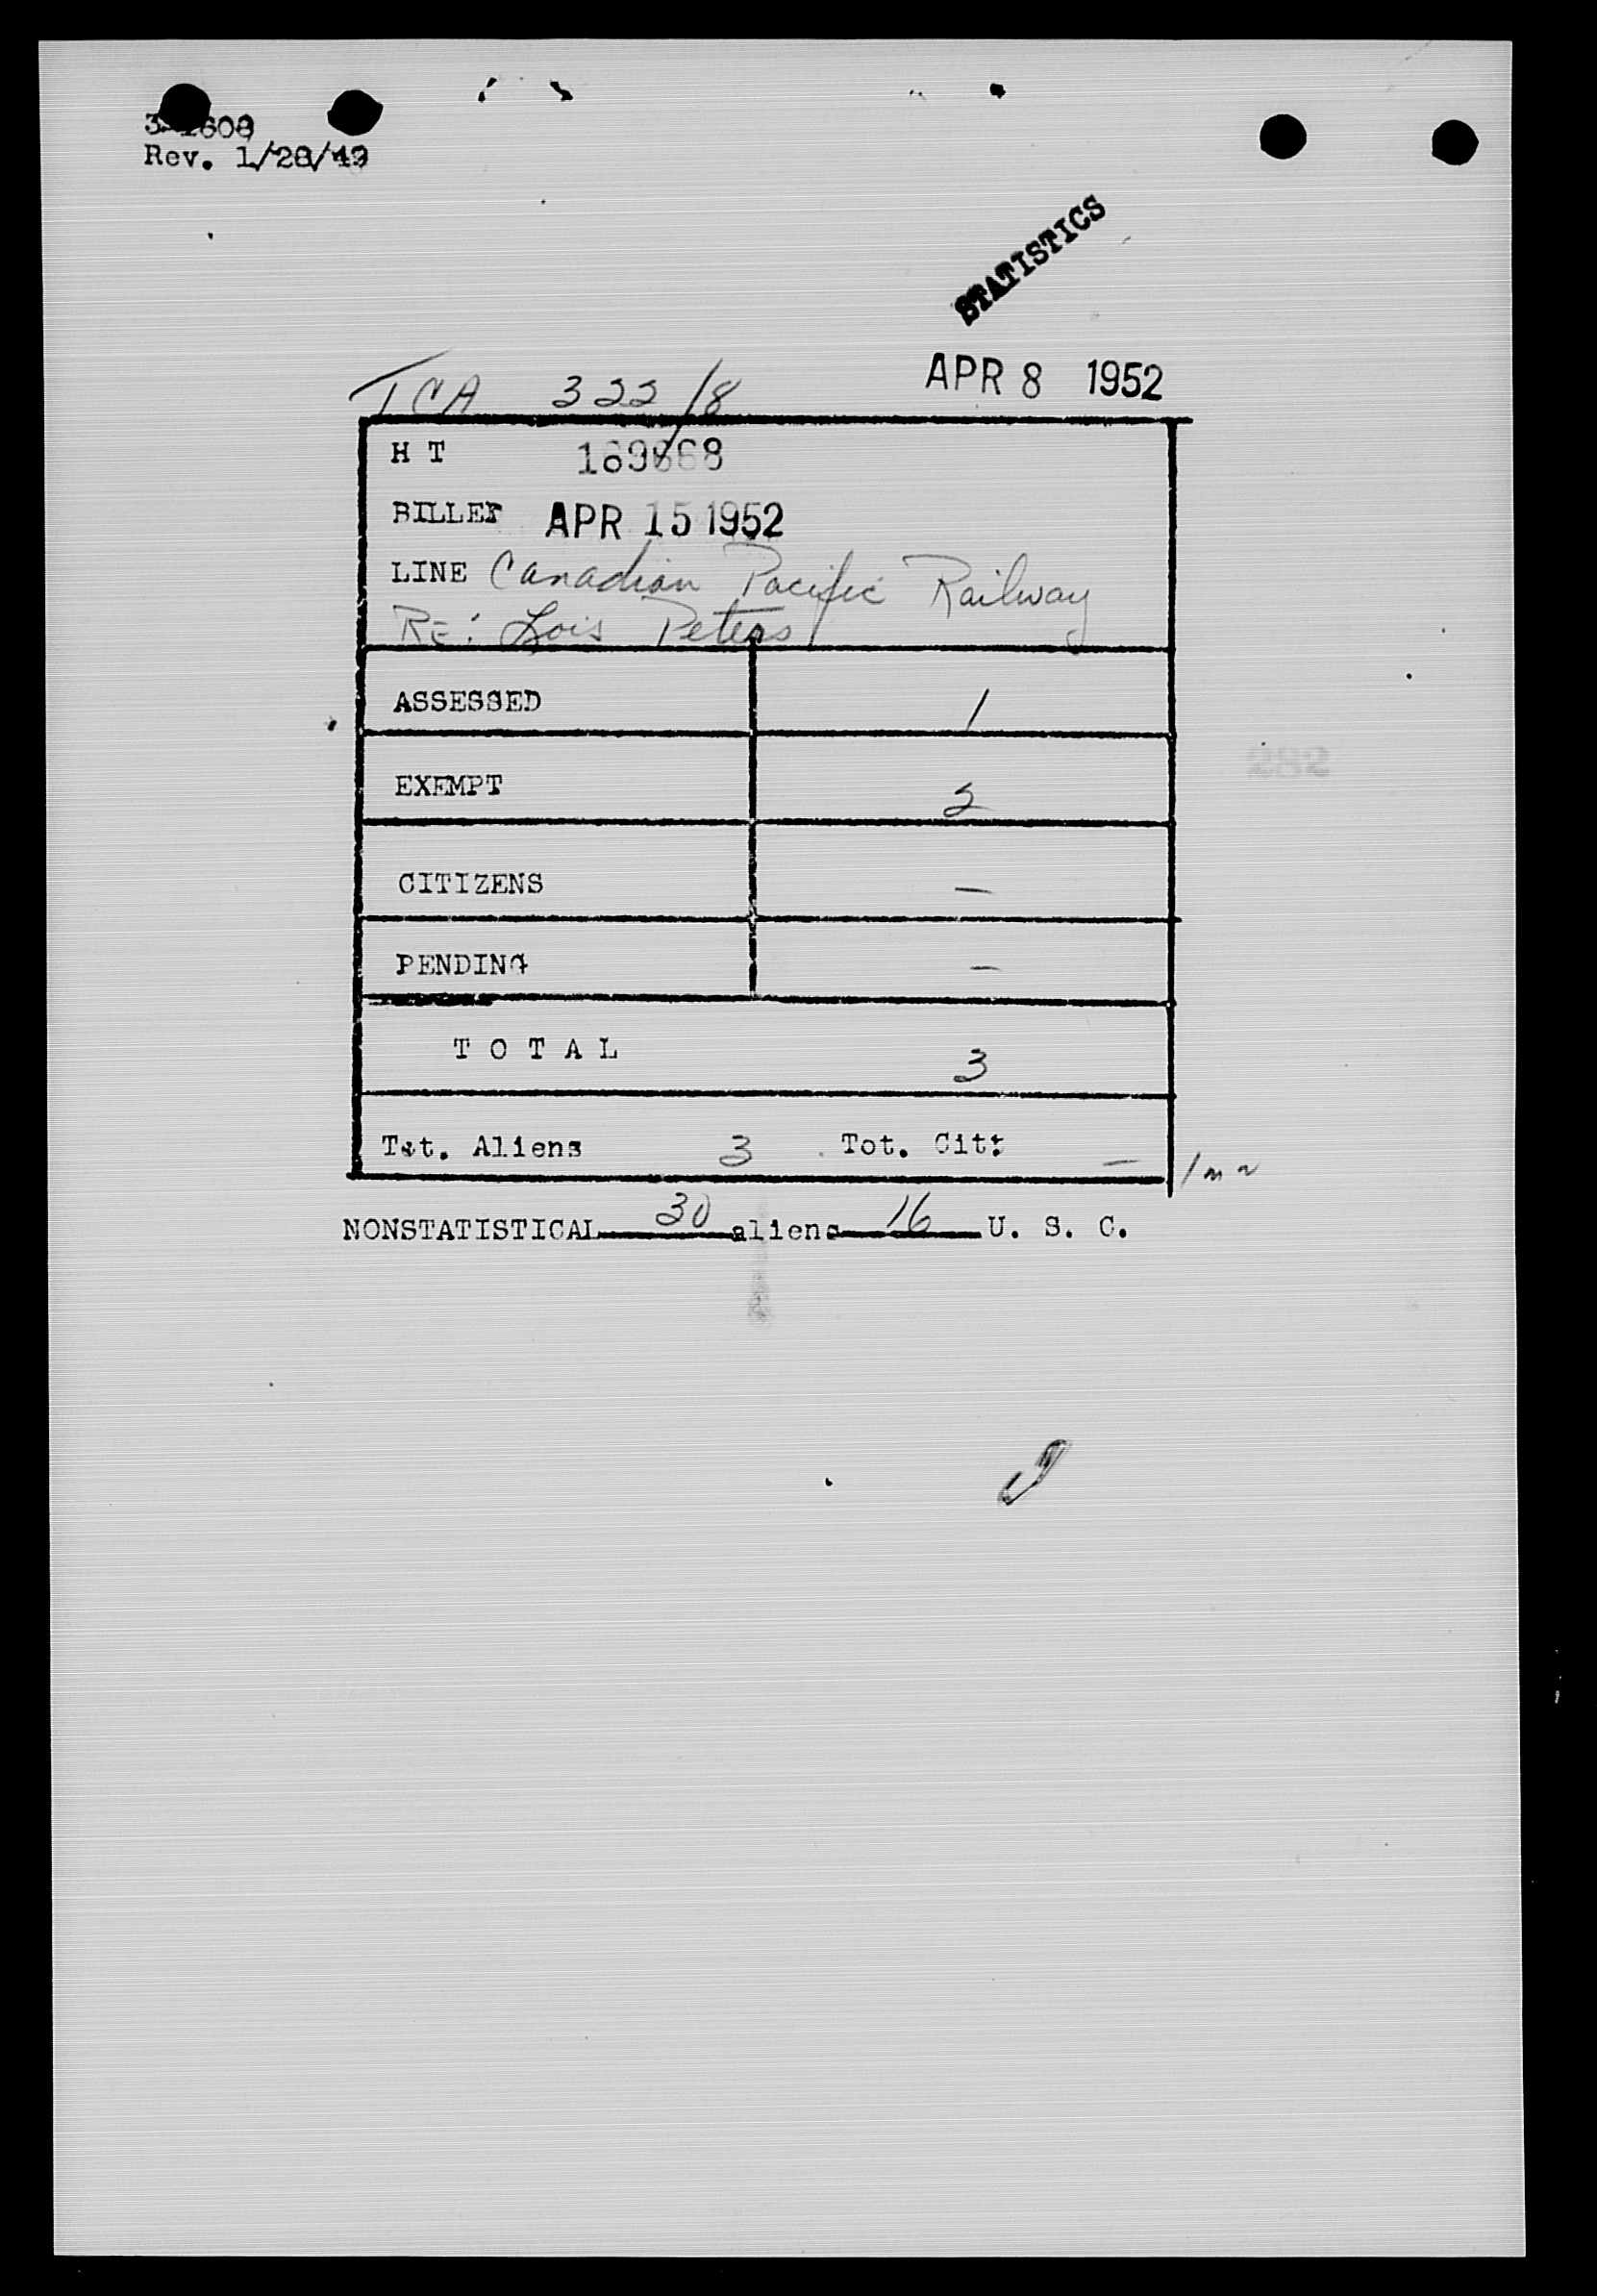 Rev. 1/28/49
STATISTICS
APR 8 1952
TCA 322/8
H T
BILLET APR 15 1952
LINE Canadian Pacific Railway
RE: Lois Peters
ASSESSED 1
EXEMPT 2
CITIZENS —
PENDING —
T O T A L 3
Tot. Aliens 3 Tot. Cit: —
NONSTATISTICAL 30 aliens 16 U. S. C.
282